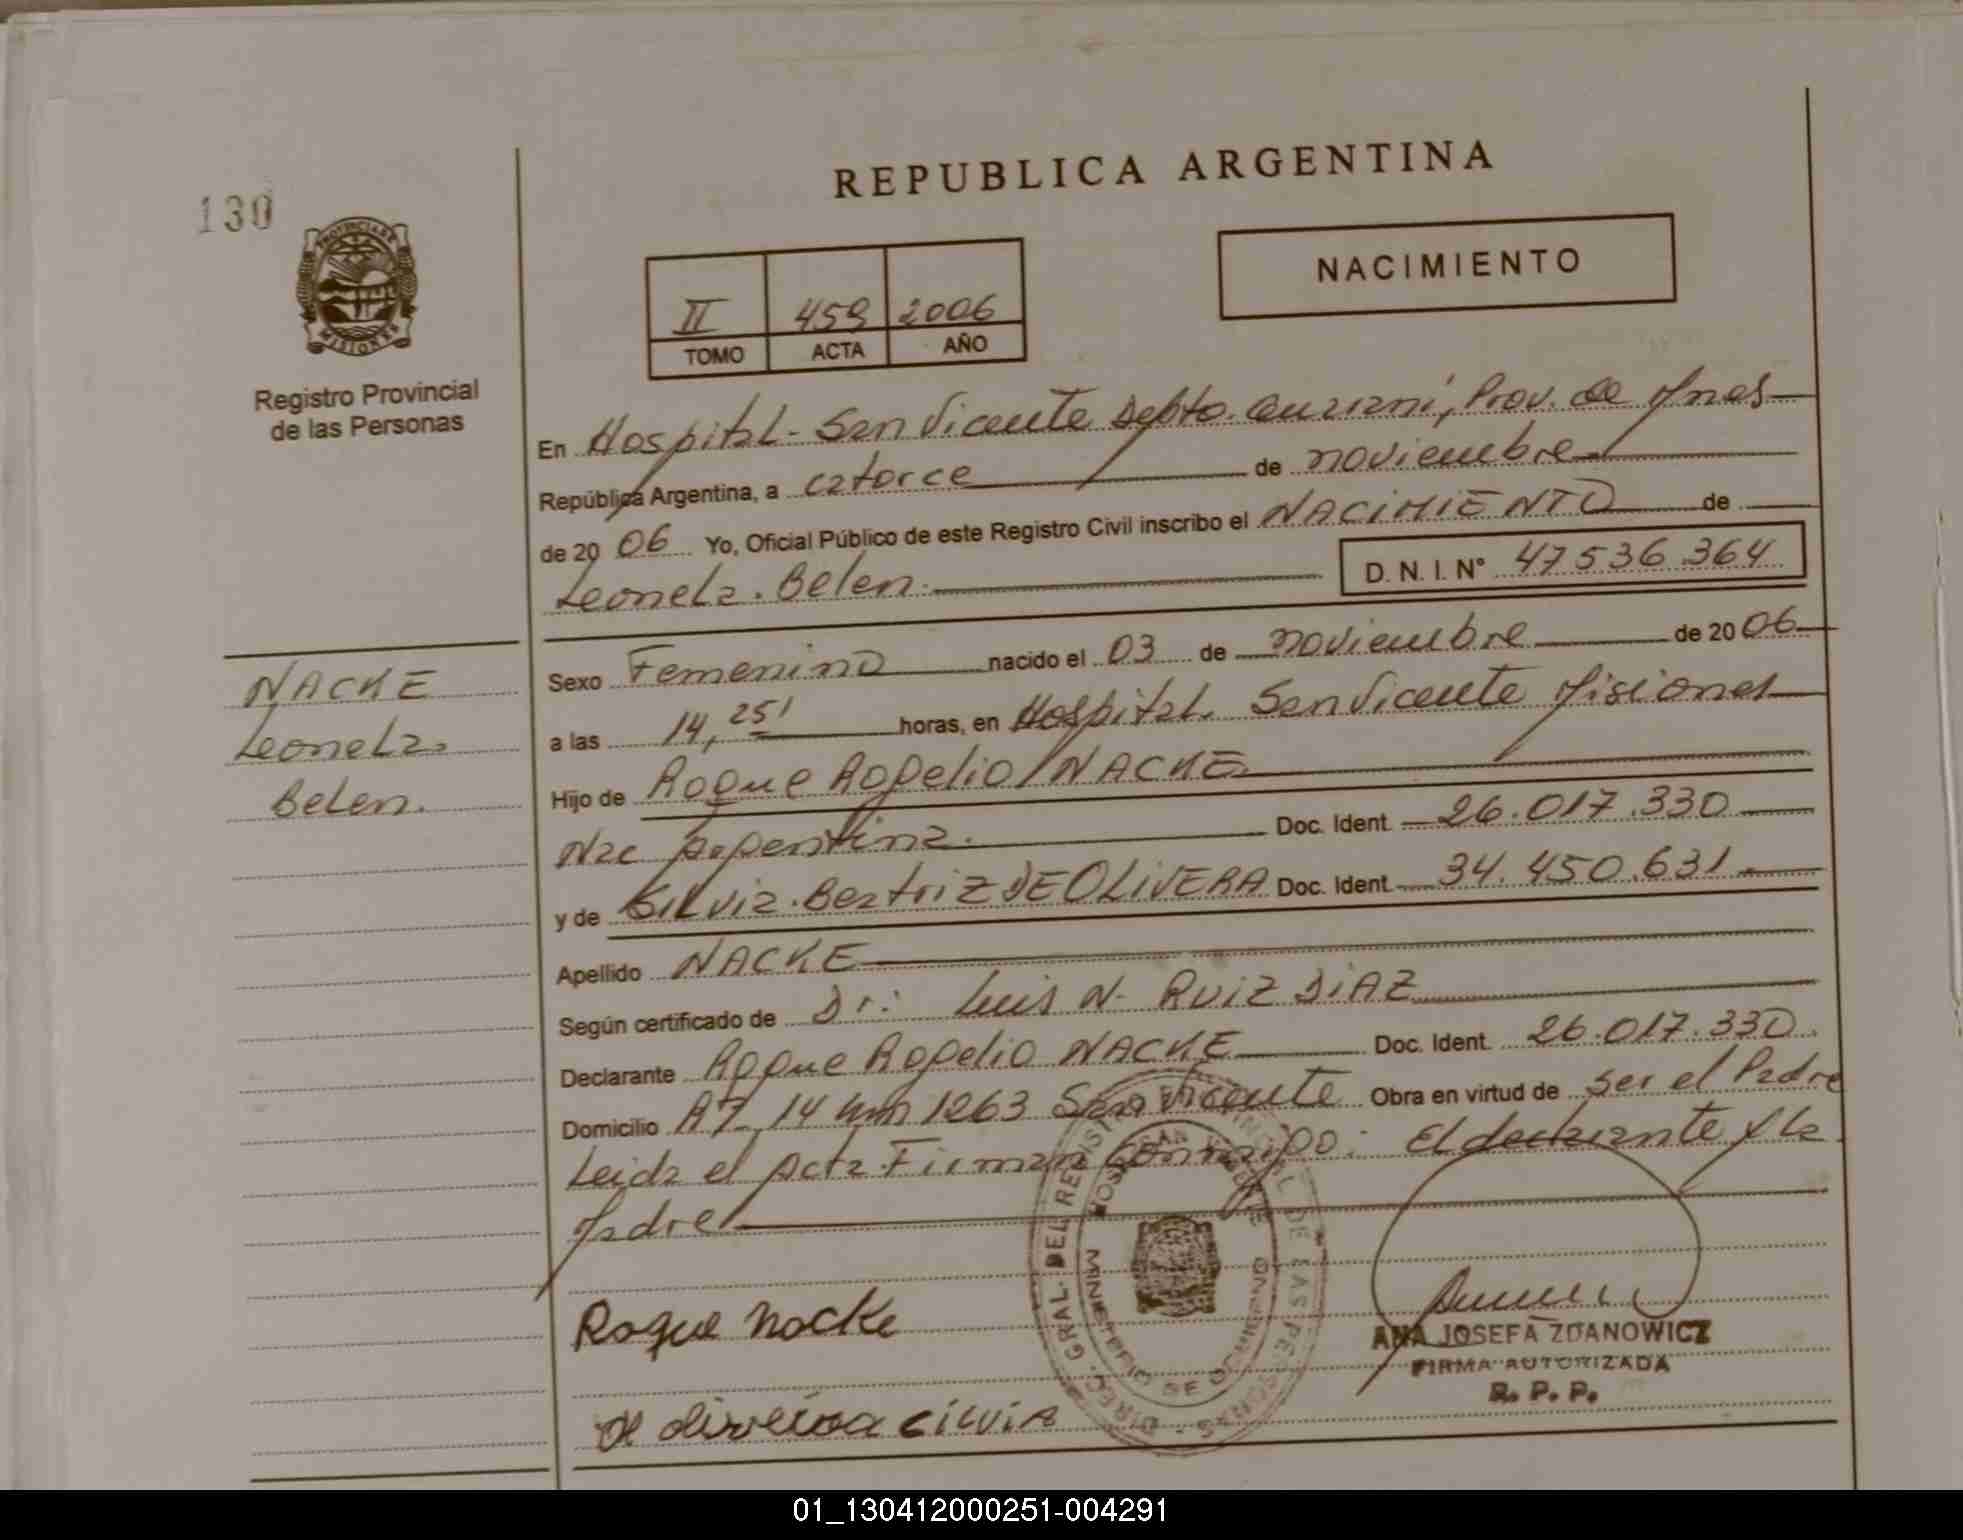 REPUBLICA ARGENTINA
130
PROVINCIA DE
MISIONES
Registro Provincial
de las Personas
II 459 2006
TOMO ACTA AÑO
NACIMIENTO
En Hospital - San Vicente Depto. Guaraní, Prov. de Mnes
República Argentina, a catorce de noviembre
de 20 06 Yo, Oficial Público de este Registro Civil inscribo el NACIMIENTO de
Leonela. Belen. D. N. I. N° 47536.364
NACKE
Leonela.
Belen.
Sexo Femenino nacido el 03 de noviembre de 20 06
a las 14, 25' horas, en Hospital. San Vicente Misiones
Hijo de Roque Rogelio NACKE.
Nac Argentina. Doc. Ident. 26.017.330
y de Silvia. Beatriz DE OLIVERA Doc. Ident. 34.450.631.
Apellido NACKE
Según certificado de Dr: Luis N. RUIZ DIAZ
Declarante Roque Rogelio NACKE Doc. Ident. 26.017.330.
Domicilio A7_14 km 1263 San Vicente Obra en virtud de ser el Padre
Leida el Acta Firman Conmigo: El declarante y la
Madre
DIREC. GRAL. DEL REGISTRO PROVINCIAL DE LAS PERSONAS
HOSP. SAN VICENTE
MINISTERIO DE GOBIERNO
Roque Nacke
de oliveira Silvia
ANA JOSEFA ZDANOWICZ
FIRMA AUTORIZADA
R. P. P.
01_130412000251-004291